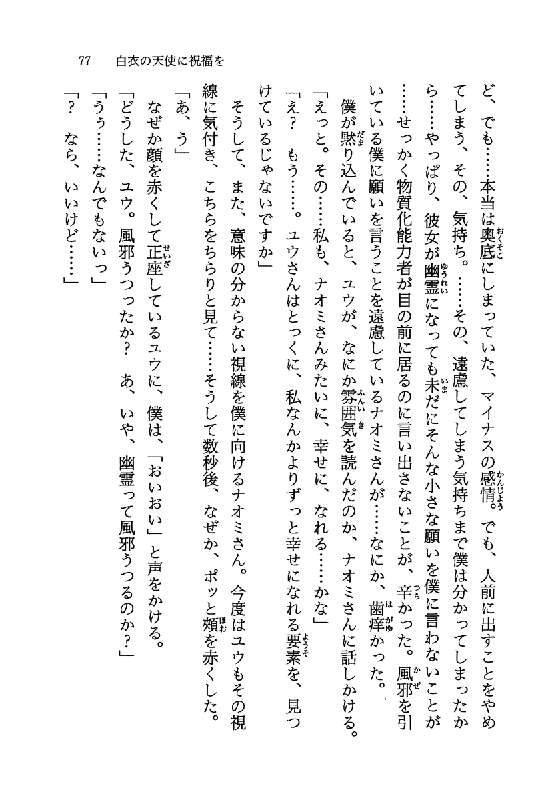 77　白衣の天使に祝福を
ど、でも……本当は奥底にしまっていた、マイナスの感情。でも、人前に出すことをやめ
てしまう、その、気持ち。……その、遠慮してしまう気持ちまで僕は分かってしまったか
ら……やっぱり、彼女が幽霊になっても未だにそんな小さな願いを僕に言わないことが
……せっかく物質化能力者が目の前に居るのに言い出さないことが、辛かった。風邪を引
いている僕に願いを言うことを遠慮しているナオミさんが……なにか、歯痒かった。
僕が黙り込んでいると、ユウが、なにか雰囲気を読んだのか、ナオミさんに話しかける。
「えっと。その……私も、ナオミさんみたいに、幸せに、なれる……かな」
「え？　もう……。ユウさんはとっくに、私なんかよりずっと幸せになれる要素を、見つ
けているじゃないですか」
そうして、また、意味の分からない視線を僕に向けるナオミさん。今度はユウもその視
線に気付き、こちらをちらりと見て……そうして数秒後、なぜか、ポッと頬を赤くした。
「あ、う」
なぜか顔を赤くして正座しているユウに、僕は、「おいおい」と声をかける。
「どうした、ユウ。風邪うつったか？　あ、いや、幽霊って風邪うつるのか？」
「うぅ……なんでもないっ」
「？　なら、いいけど……」